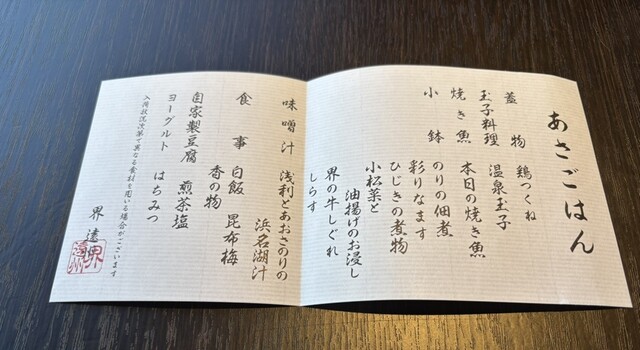 あさごはん
蓋物 鶏つくね
玉子料理 温泉玉子
焼き魚 本日の焼き魚
小鉢 のりの佃煮
彩りなます
ひじきの煮物
小松菜と
油揚げのお浸し
界の牛しぐれ
しらす
味噌汁 浅利とあおさのりの
浜名湖汁
食事 白飯 昆布梅
香の物
自家製豆腐 煎茶塩
ヨーグルト はちみつ
入荷状況次第で異なる食材を用いる場合がございます
界 遠州